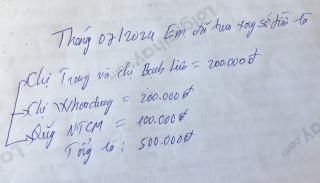 Tháng 07/2024 Em đã trao xong số tiền là
Chị Trang và chị Bạch Liên = 200.000đ
Chị = 200.000đ
Quỹ NTCM = 100.000đ
Tổng là: 500.000đ